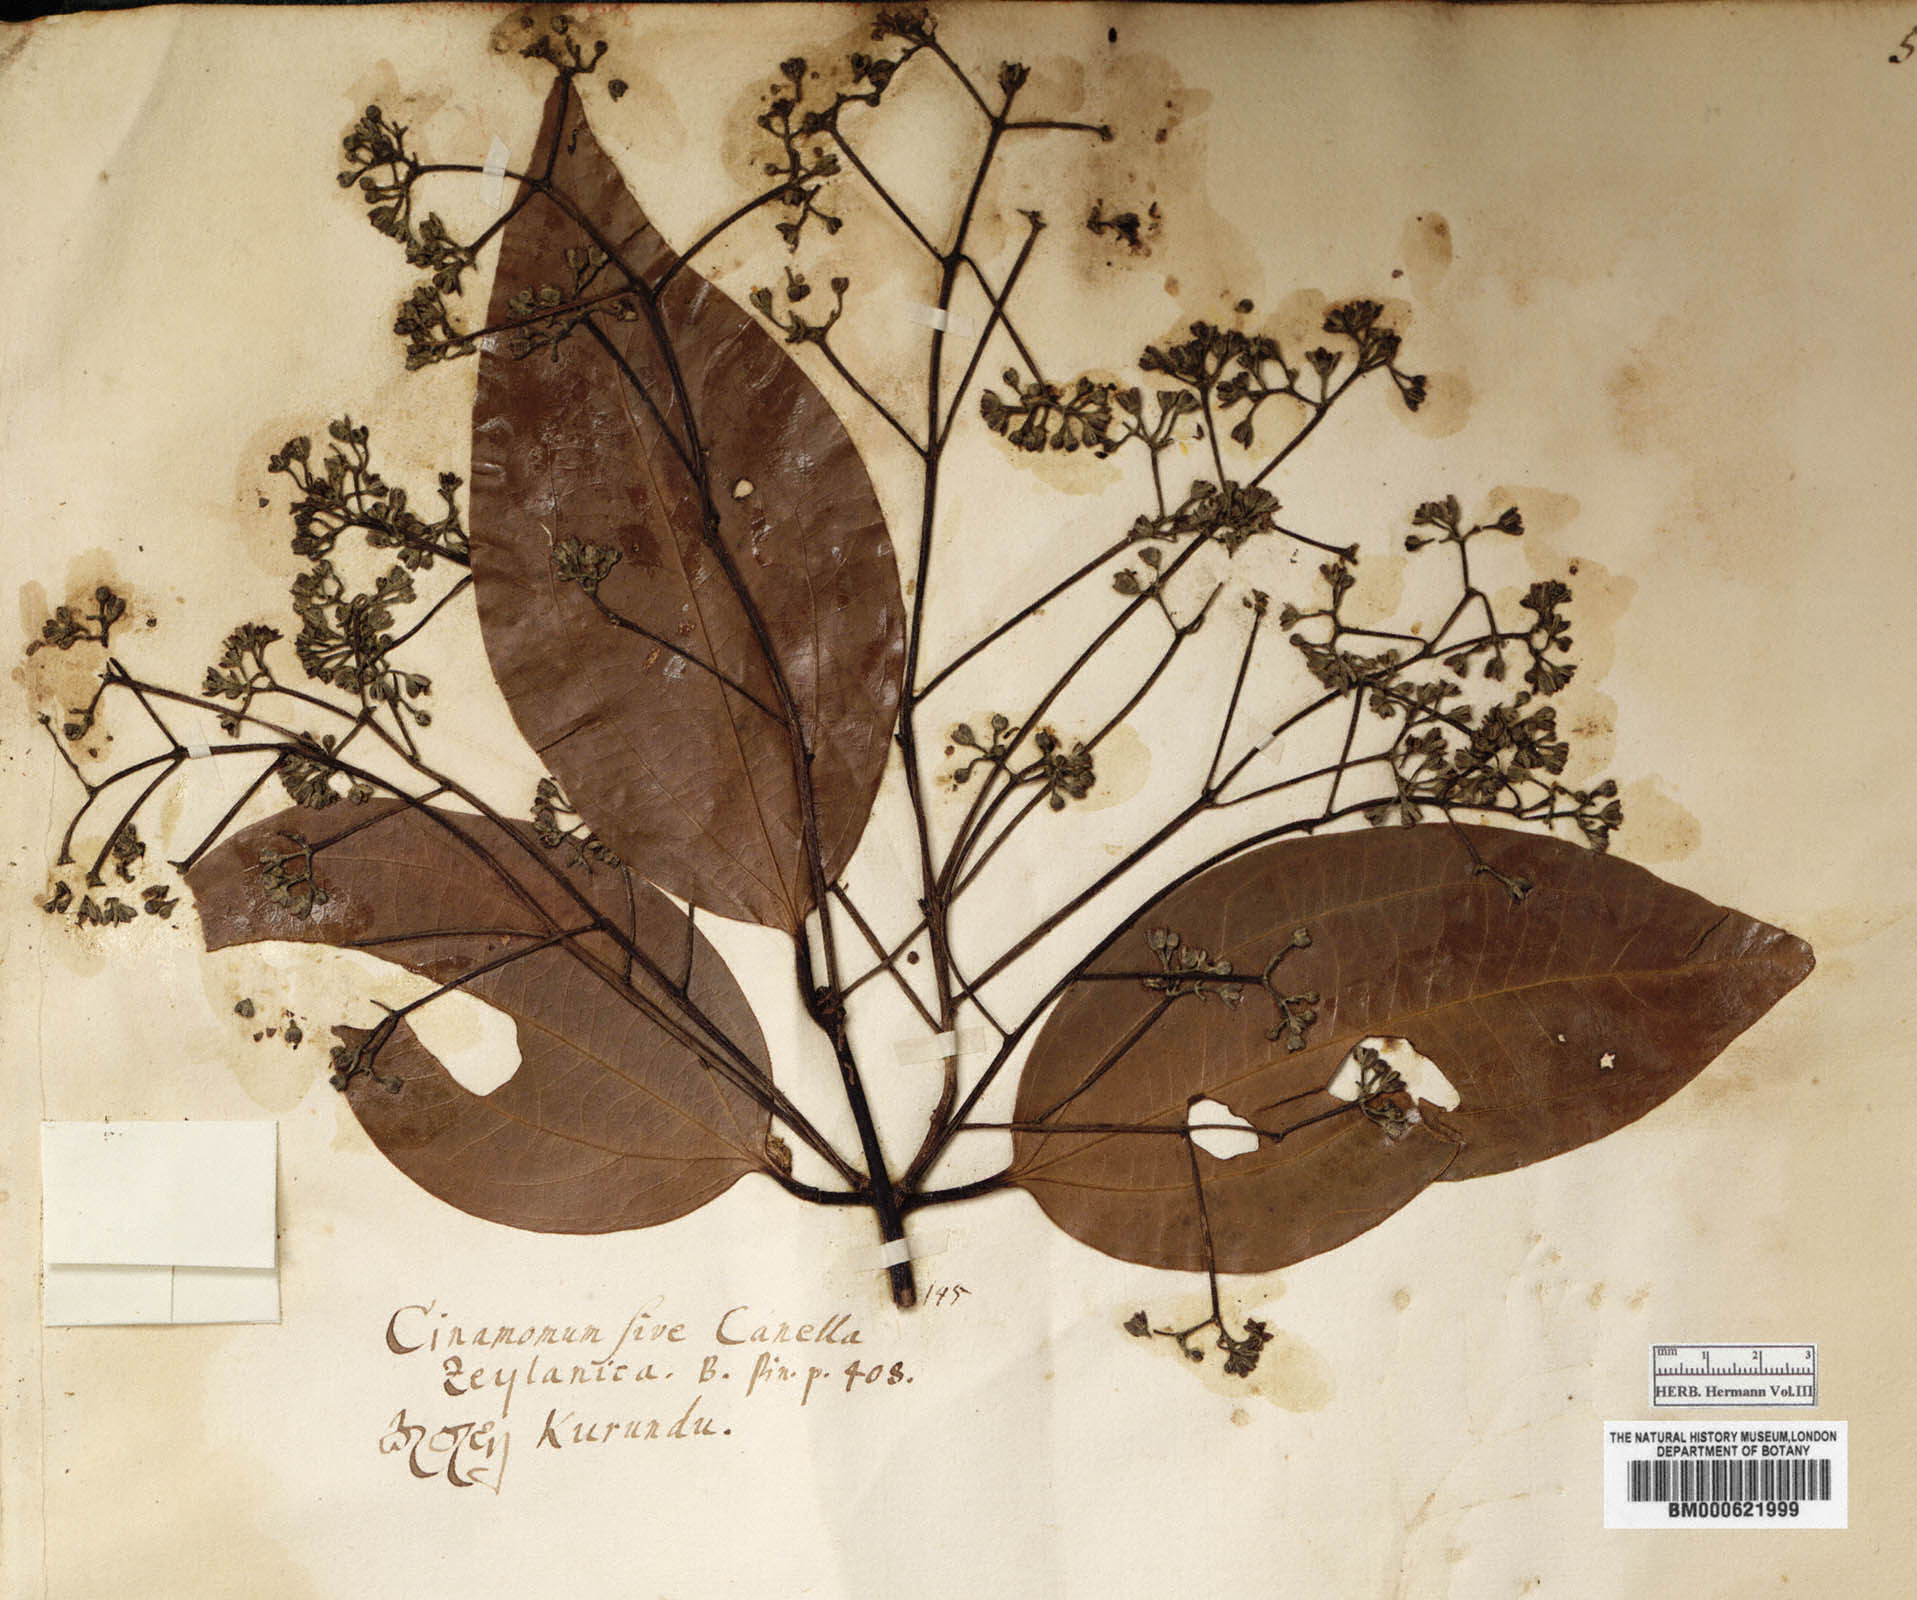 5
145
Cinamomum sive Canella
Zeylanica. B. pin. p. 408.
Kurundu.
mm 1 2 3
HERB. Hermann Vol.III
THE NATURAL HISTORY MUSEUM,LONDON
DEPARTMENT OF BOTANY
BM000621999